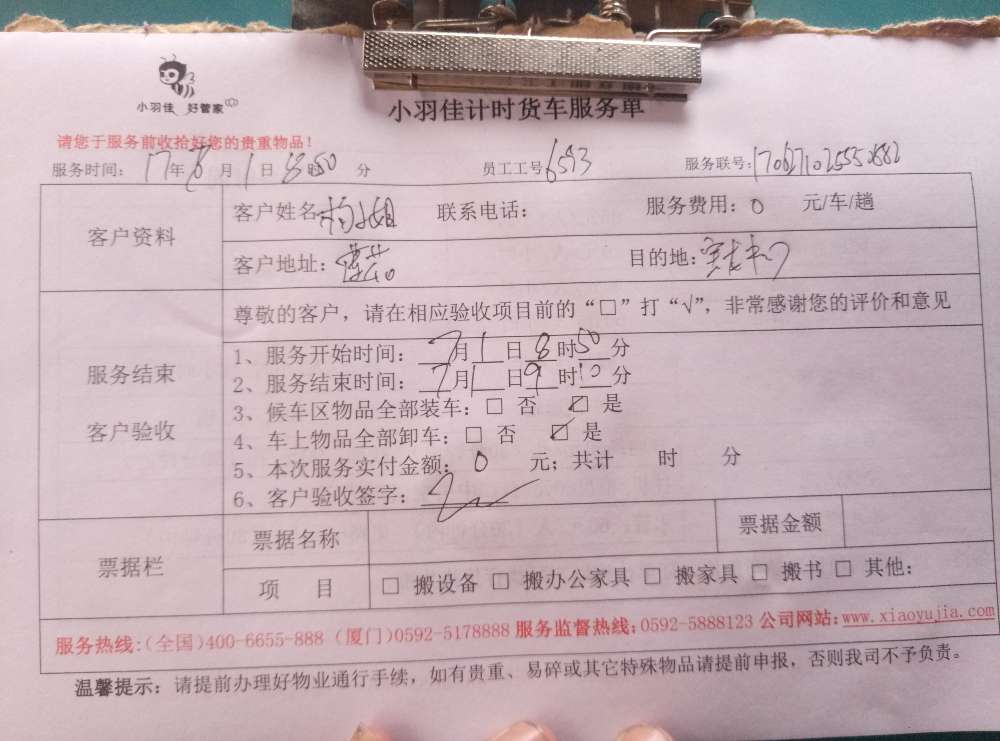 小羽佳 好管家
小羽佳计时货车服务单
请您于服务前收拾好您的贵重物品！
服务时间：17年 月1日8时50分 员工工号6593 服务联号：
客户资料
客户姓名 联系电话： 服务费用：0 元/车/趟
客户地址： 目的地：
服务结束
客户验收
尊敬的客户，请在相应验收项目前的“□”打“√”，非常感谢您的评价和意见
1、服务开始时间：7月1日8时50分
2、服务结束时间：7月1日9时10分
3、候车区物品全部装车：□ 否 ☑ 是
4、车上物品全部卸车：□ 否 ☑ 是
5、本次服务实付金额：0 元；共计 时 分
6、客户验收签字：
票据栏
票据名称 票据金额
项 目 □ 搬设备 □ 搬办公家具 □ 搬家具 □ 搬书 □ 其他：
服务热线：(全国)400-6655-888 (厦门)0592-5178888 服务监督热线：0592-5888123 公司网站：www.xiaoyujia.com
温馨提示：请提前办理好物业通行手续，如有贵重、易碎或其它特殊物品请提前申报，否则我司不予负责。